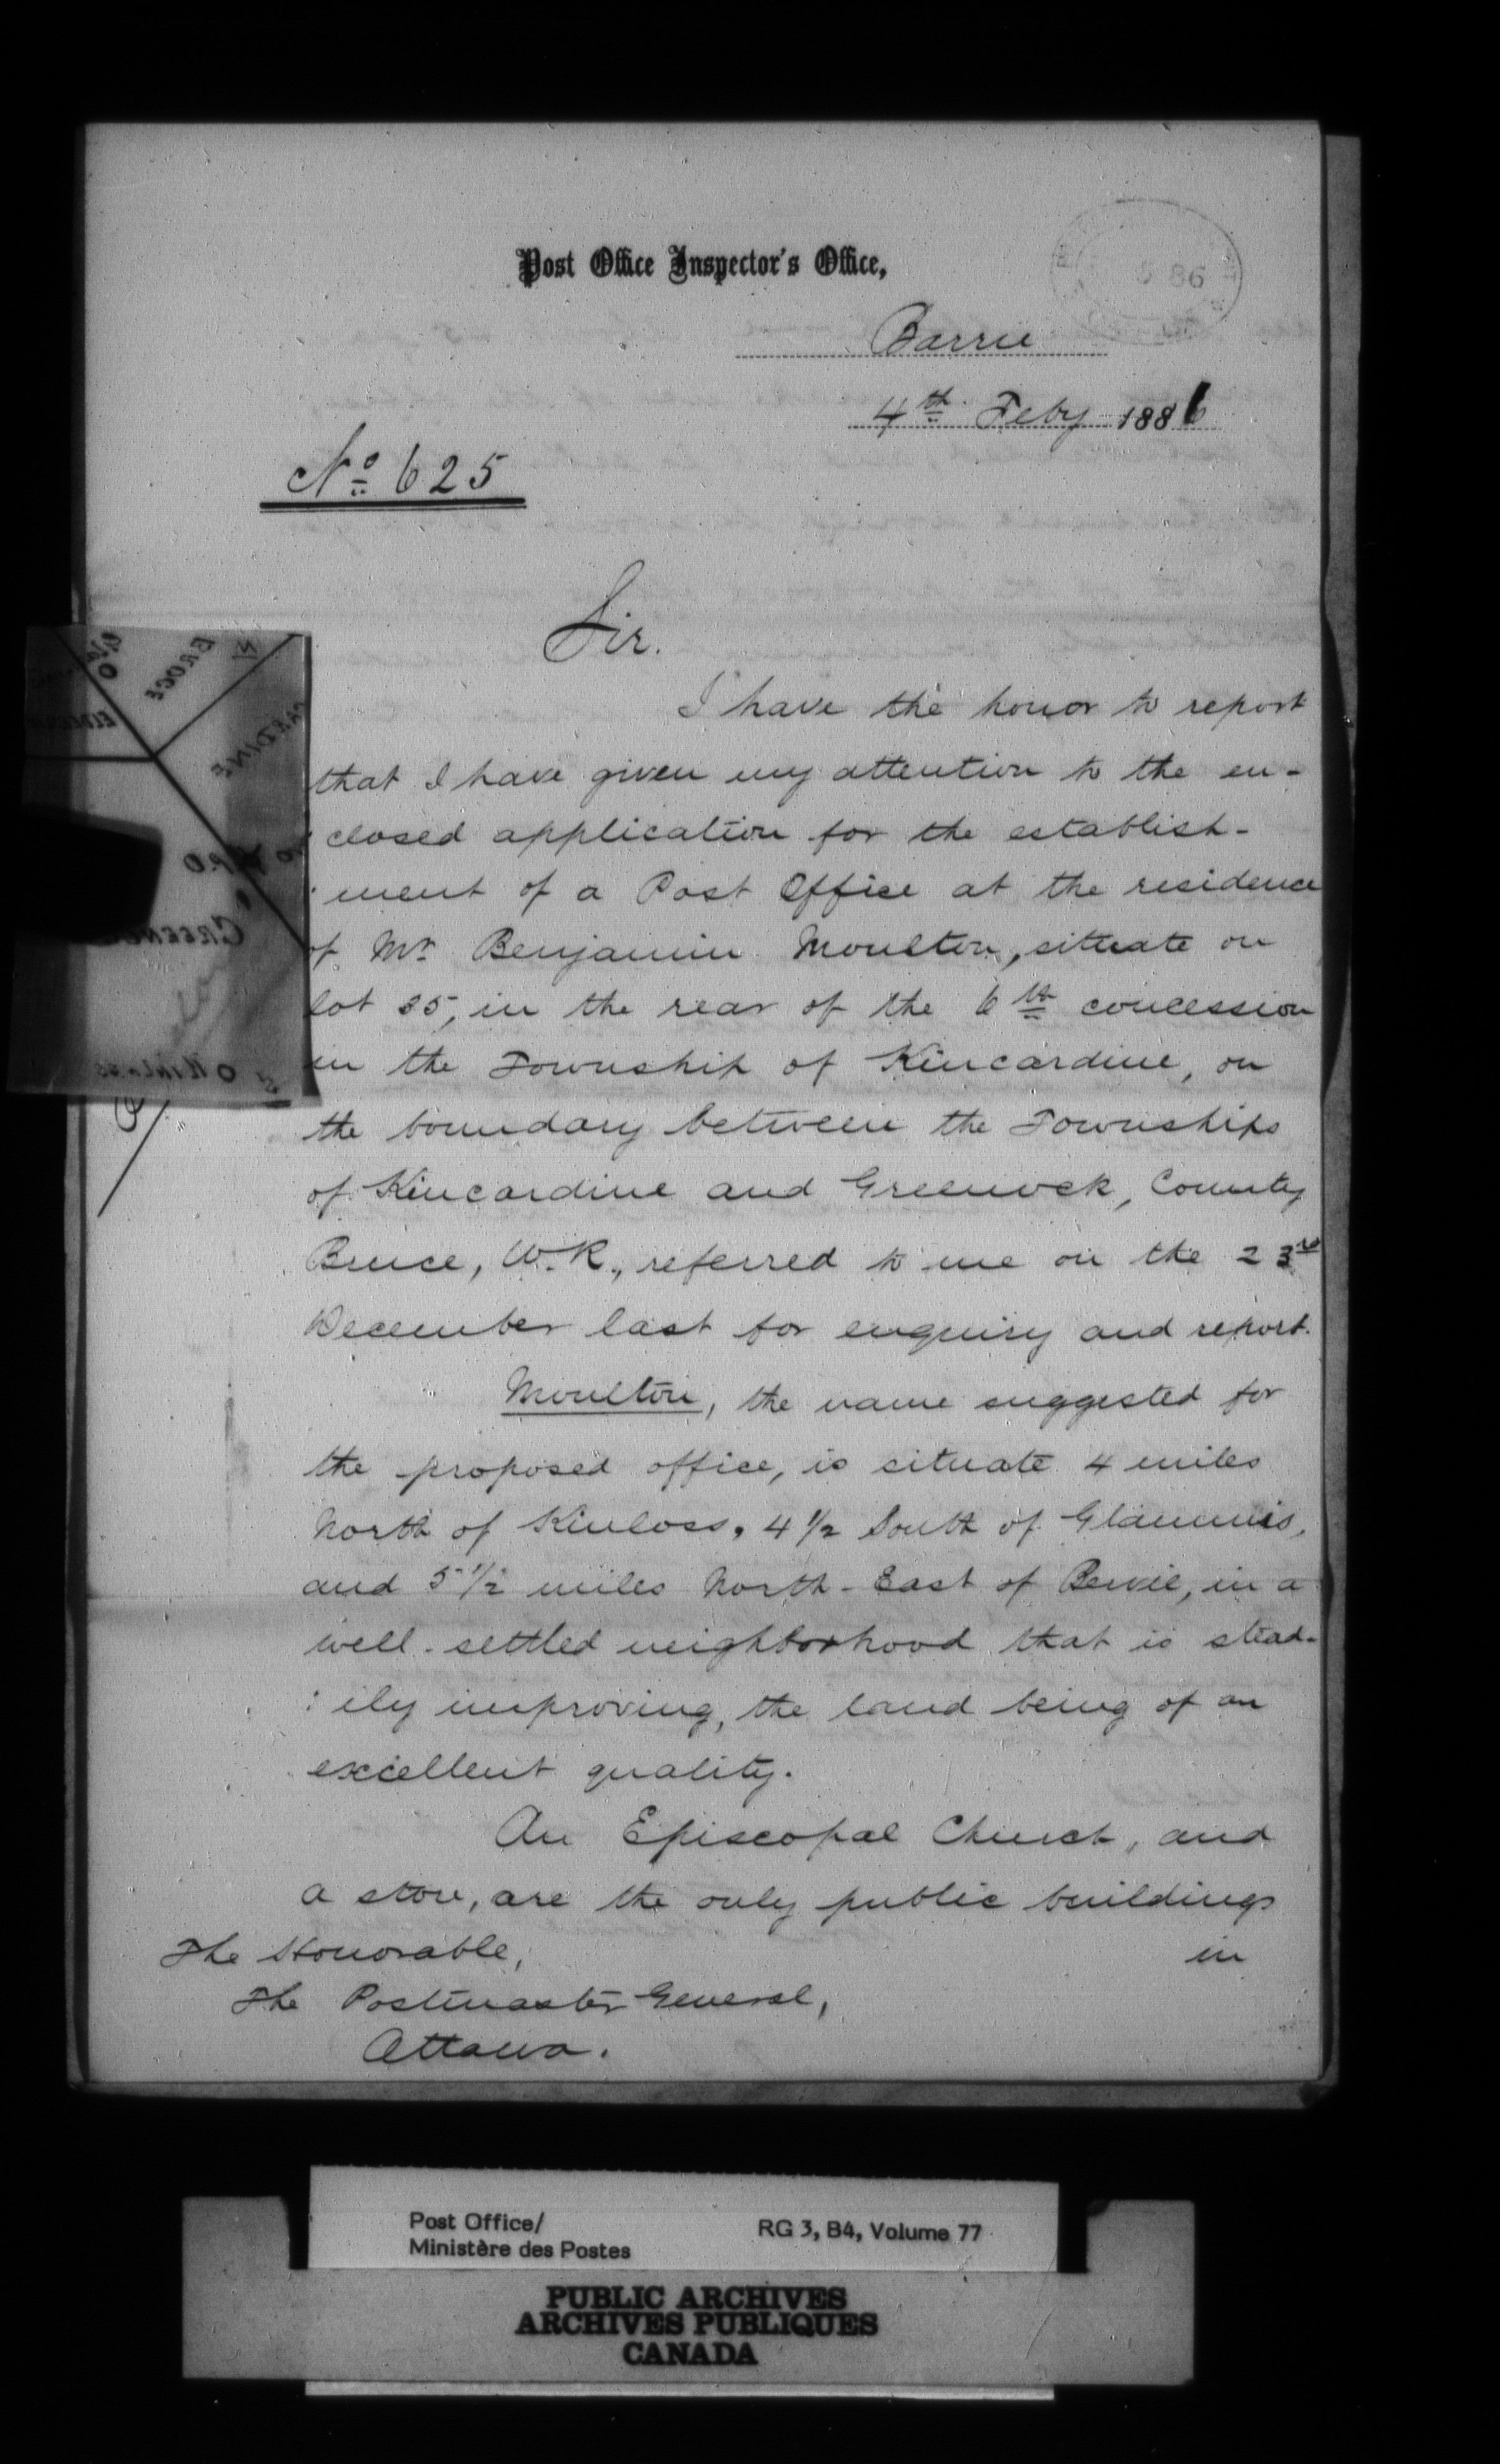 Post Office Inspector's Office,
86
Barrie
4th Feby 1886
No 625
Sir.
I have the honor to report
that I have given my attention to the en-
closed application for the establish-
:ment of a Post Office at the residence
of Mr Benjamin Moulton, situate on
lot 35, in the rear of the 6th concession
in the Township of Kincardine, on
the boundary between the Townships
of Kincardine and Greenock, County
Bruce, W.R., referred to me on the 23rd
December last for enquiry and report.
Moulton, the name suggested for
the proposed office, is situate 4 miles
North of Kinloss, 4 1/2 South of Glammis,
and 5 1/2 miles North-East of Bervie, in a
well-settled neighborhood that is stead-
:ily improving, the land being of an
excellent quality.
An Episcopal Church, and
a store, are the only public buildings
in
The Honorable,
The Postmaster General,
Ottawa.
BRUCE
Post Office/
Ministère des Postes
RG 3, B4, Volume 77
PUBLIC ARCHIVES
ARCHIVES PUBLIQUES
CANADA